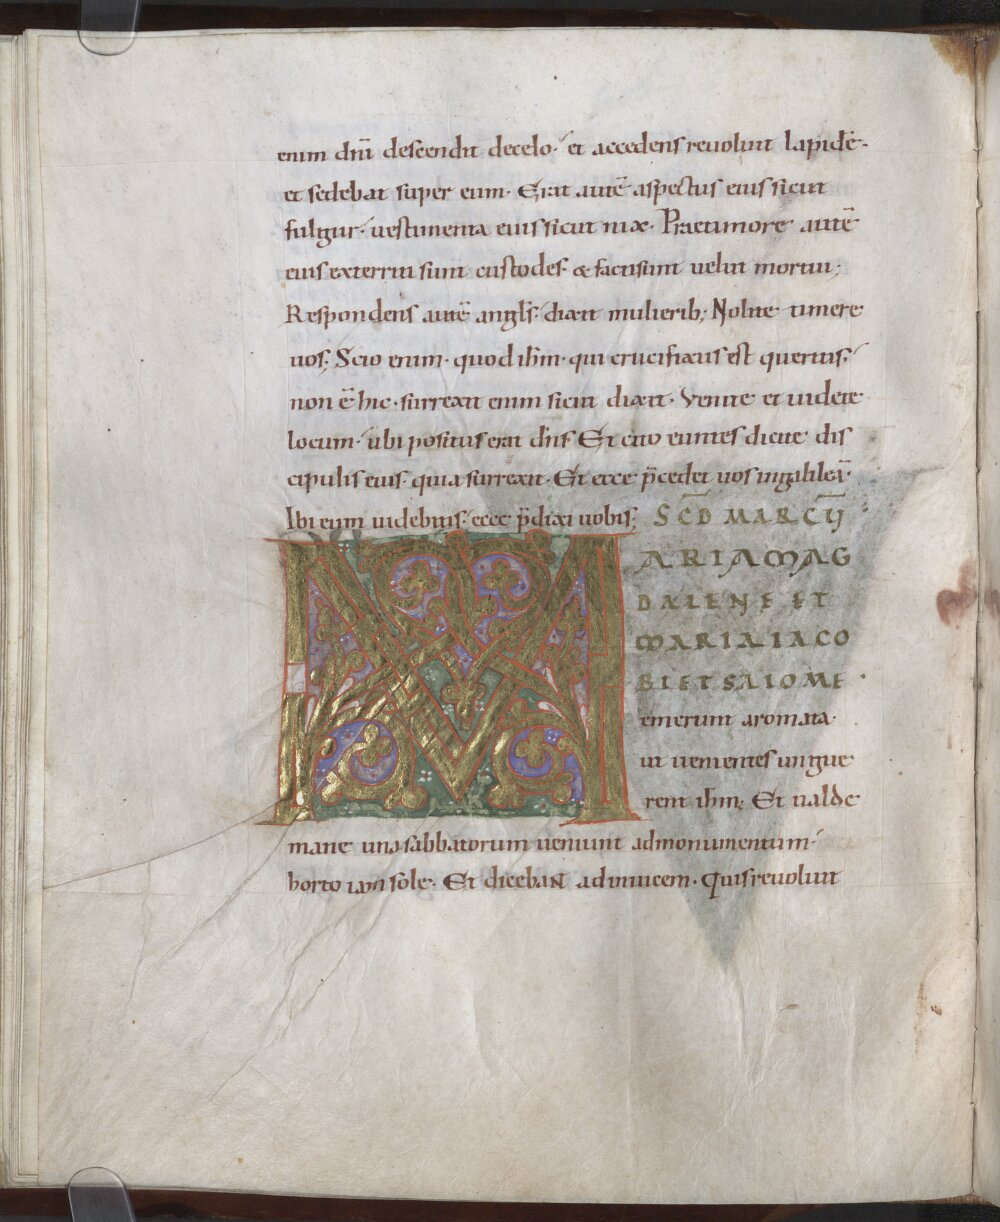 enim dn̄i descendit decelo. et accedens reuoluit lapidē.
et sedebat super eum. Erat autē aspectus eius sicut
fulgur. uestimenta eius sicut nix. Praetimore autē
eius exterriti sunt custodes. & facti sunt uelut mortui;
Respondens autē angls. dixit mulierib; Nolite timere
uos; Scio enim. quod ih̄m. qui crucifixus est queritis.
non ē hic. surrexit enim sicut dixit. Venite et uidete
locum. ubi positus erat dn̄s. Et cito euntes dicite dis
cipulis eius. quia surrexit. Et ecce p̄cedet uos ingalileā.
Ibi eum uidebitis. ecce p̄dixi uobis; SCD̄ MARCŪ
MARIA MAG
DALENE ET
MARIA IACO
BI ET SALOME
emerunt aromata.
ut uenientes ungue
rent ih̄m; Et ualde
mane una sabbatorum ueniunt admonumentum.
horto iam sole. Et diceban̄t adinuicem. Quis reuoluit